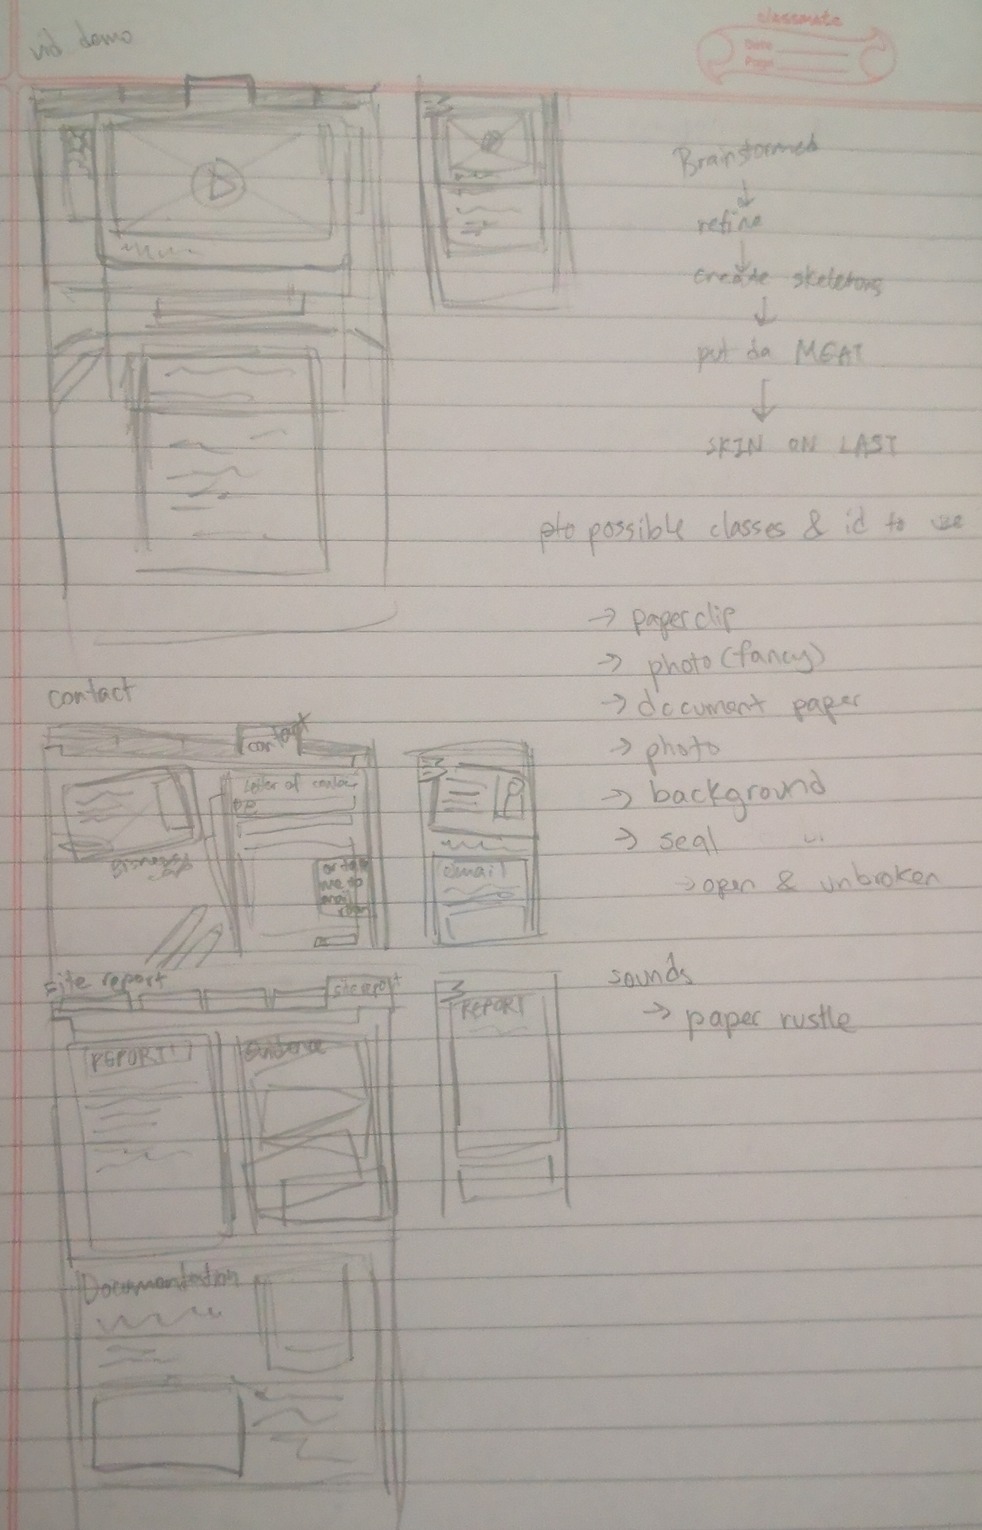 vid demo
classmate
Date
Page
Brainstormed
↓
refine
↓
create skeletons
↓
put da MEAT
↓
SKIN ON LAST
pto possible classes & id to use
→ paperclip
→ photo (fancy)
→ document paper
→ photo
→ background
→ seal
→ open & unbroken
sounds
→ paper rustle
contact
contact
Letter of contact
or talk
me to
email
site report
site report
REPORT!
Evidence
REPORT
Documentation